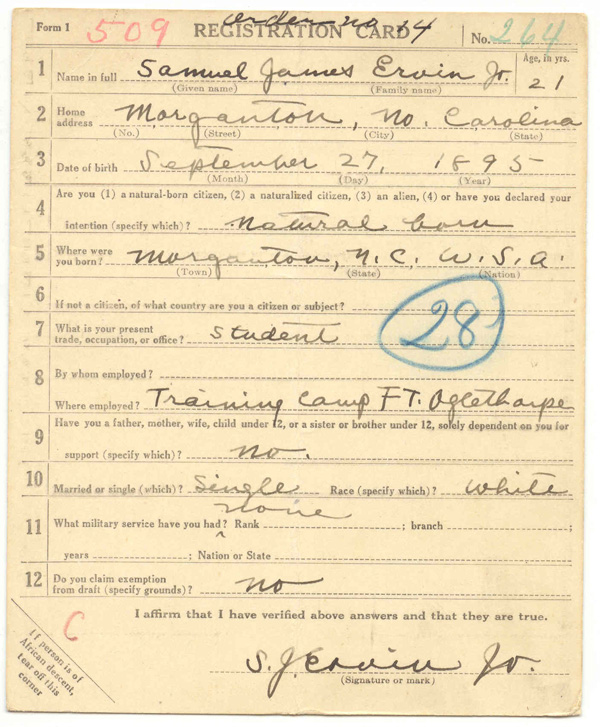 Order no 14
Form 1 509 REGISTRATION CARD No. 264
1 Name in full Samuel James Ervin Jr. Age, in yrs. 21
(Given name) (Family name)
2 Home address Morganton, No. Carolina
(No.) (Street) (City) (State)
3 Date of birth September 27, 1895
(Month) (Day) (Year)
4 Are you (1) a natural-born citizen, (2) a naturalized citizen, (3) an alien, (4) or have you declared your
intention (specify which)? natural born
5 Where were you born? Morganton, N.C. U.S.A.
(Town) (State) (Nation)
6 If not a citizen, of what country are you a citizen or subject?
7 What is your present trade, occupation, or office? Student 28
8 By whom employed?
Where employed? Training Camp FT. Oglethorpe
9 Have you a father, mother, wife, child under 12, or a sister or brother under 12, solely dependent on you for
support (specify which)? no.
10 Married or single (which)? Single Race (specify which)? White
none
11 What military service have you had? Rank ; branch ;
years ; Nation or State
12 Do you claim exemption from draft (specify grounds)? no
I affirm that I have verified above answers and that they are true.
C
If person is of
African descent,
tear off this
corner
S. J. Ervin Jr.
(Signature or mark)